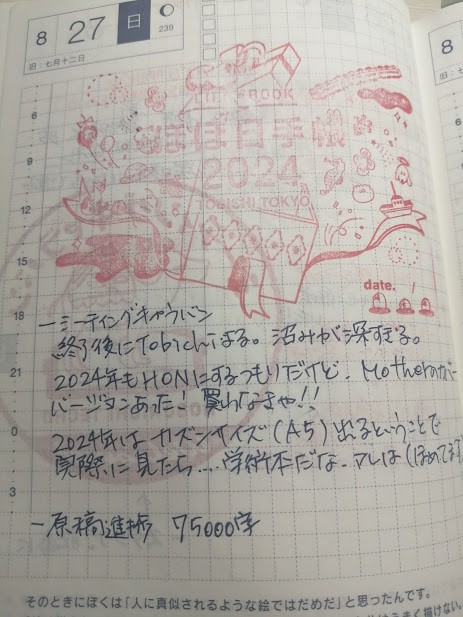 8 27 日
239
旧：七月十二日
8
旧
6
9
12
15
18
21
0
3
TECHO BOOK
ほぼ日手帳
2024
TOBICHI TOKYO
date. /
ーミーティングキャラバン
終了後にTobichiよる。沼みが深すぎる。
2024年もHONにするつもりだけど、Motherのカバー
バージョンあった！買わなきゃ!!
2024年はカズンサイズ(A5)出るということで
実際に見たら....学術本だな、アレは(ほめてます)
ー原稿進捗 75000字
そのときにぼくは「人に真似されるような絵ではだめだ」と思ったんです。
うまく描けない。